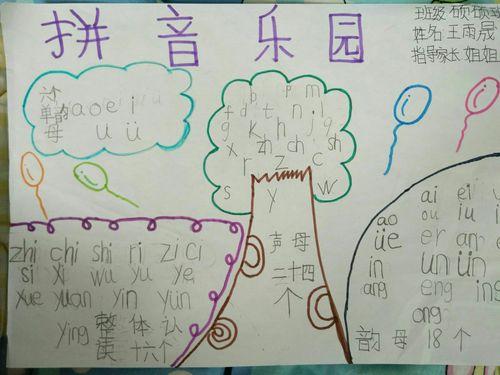 拼音乐园
班级
姓名:王雨晟
指导家长:姐姐
六个
单韵
母
a o e i
u ü
b p m
f d t n l
g k h j q
x zh ch sh
r z c
s y w
声母
二十四
个
zhi chi shi ri zi ci
si yi wu yu ye
yue yuan yin yun
ying
整体认
读十六个
ai ei
ao ou iu
üe er an
in un ün
ang eng ing
ong
韵母18个